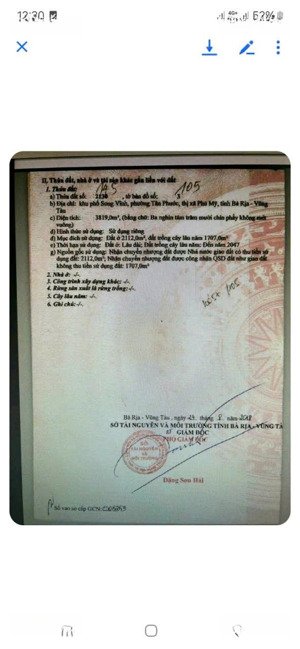 12:30
4G+
62%
II. Thửa đất, nhà ở và tài sản khác gắn liền với đất
1. Thửa đất: 105
a) Thửa đất số: tờ bản đồ số: 3
b) Địa chỉ: khu phố Song Vĩnh, phường Tân Phước, thị xã Phú Mỹ, tỉnh Bà Rịa - Vũng
Tàu
c) Diện tích: 3819,0m², (bằng chữ: Ba nghìn tám trăm mười chín phẩy không mét
vuông)
d) Hình thức sử dụng: Sử dụng riêng
đ) Mục đích sử dụng: Đất ở 2112,0m², đất trồng cây lâu năm 1707,0m²
e) Thời hạn sử dụng: Đất ở: Lâu dài; Đất trồng cây lâu năm: Đến năm 2047
g) Nguồn gốc sử dụng: Nhận chuyển nhượng đất được Nhà nước giao đất có thu tiền sử
dụng đất: 2112,0m²; Nhận chuyển nhượng đất được công nhận QSD đất như giao đất
không thu tiền sử dụng đất: 1707,0m²
2. Nhà ở: -/-.
3. Công trình xây dựng khác: -/-.
4. Rừng sản xuất là rừng trồng: -/-.
5. Cây lâu năm: -/-.
6. Ghi chú: -/-.
Bà Rịa - Vũng Tàu, ngày tháng năm
SỞ TÀI NGUYÊN VÀ MÔI TRƯỜNG TỈNH BÀ RỊA - VŨNG TÀU
GIÁM ĐỐC
PHÓ GIÁM ĐỐC
SỞ
TÀI NGUYÊN
VÀ
MÔI TRƯỜNG
Đặng Sơn Hải
Số vào sổ cấp GCN: